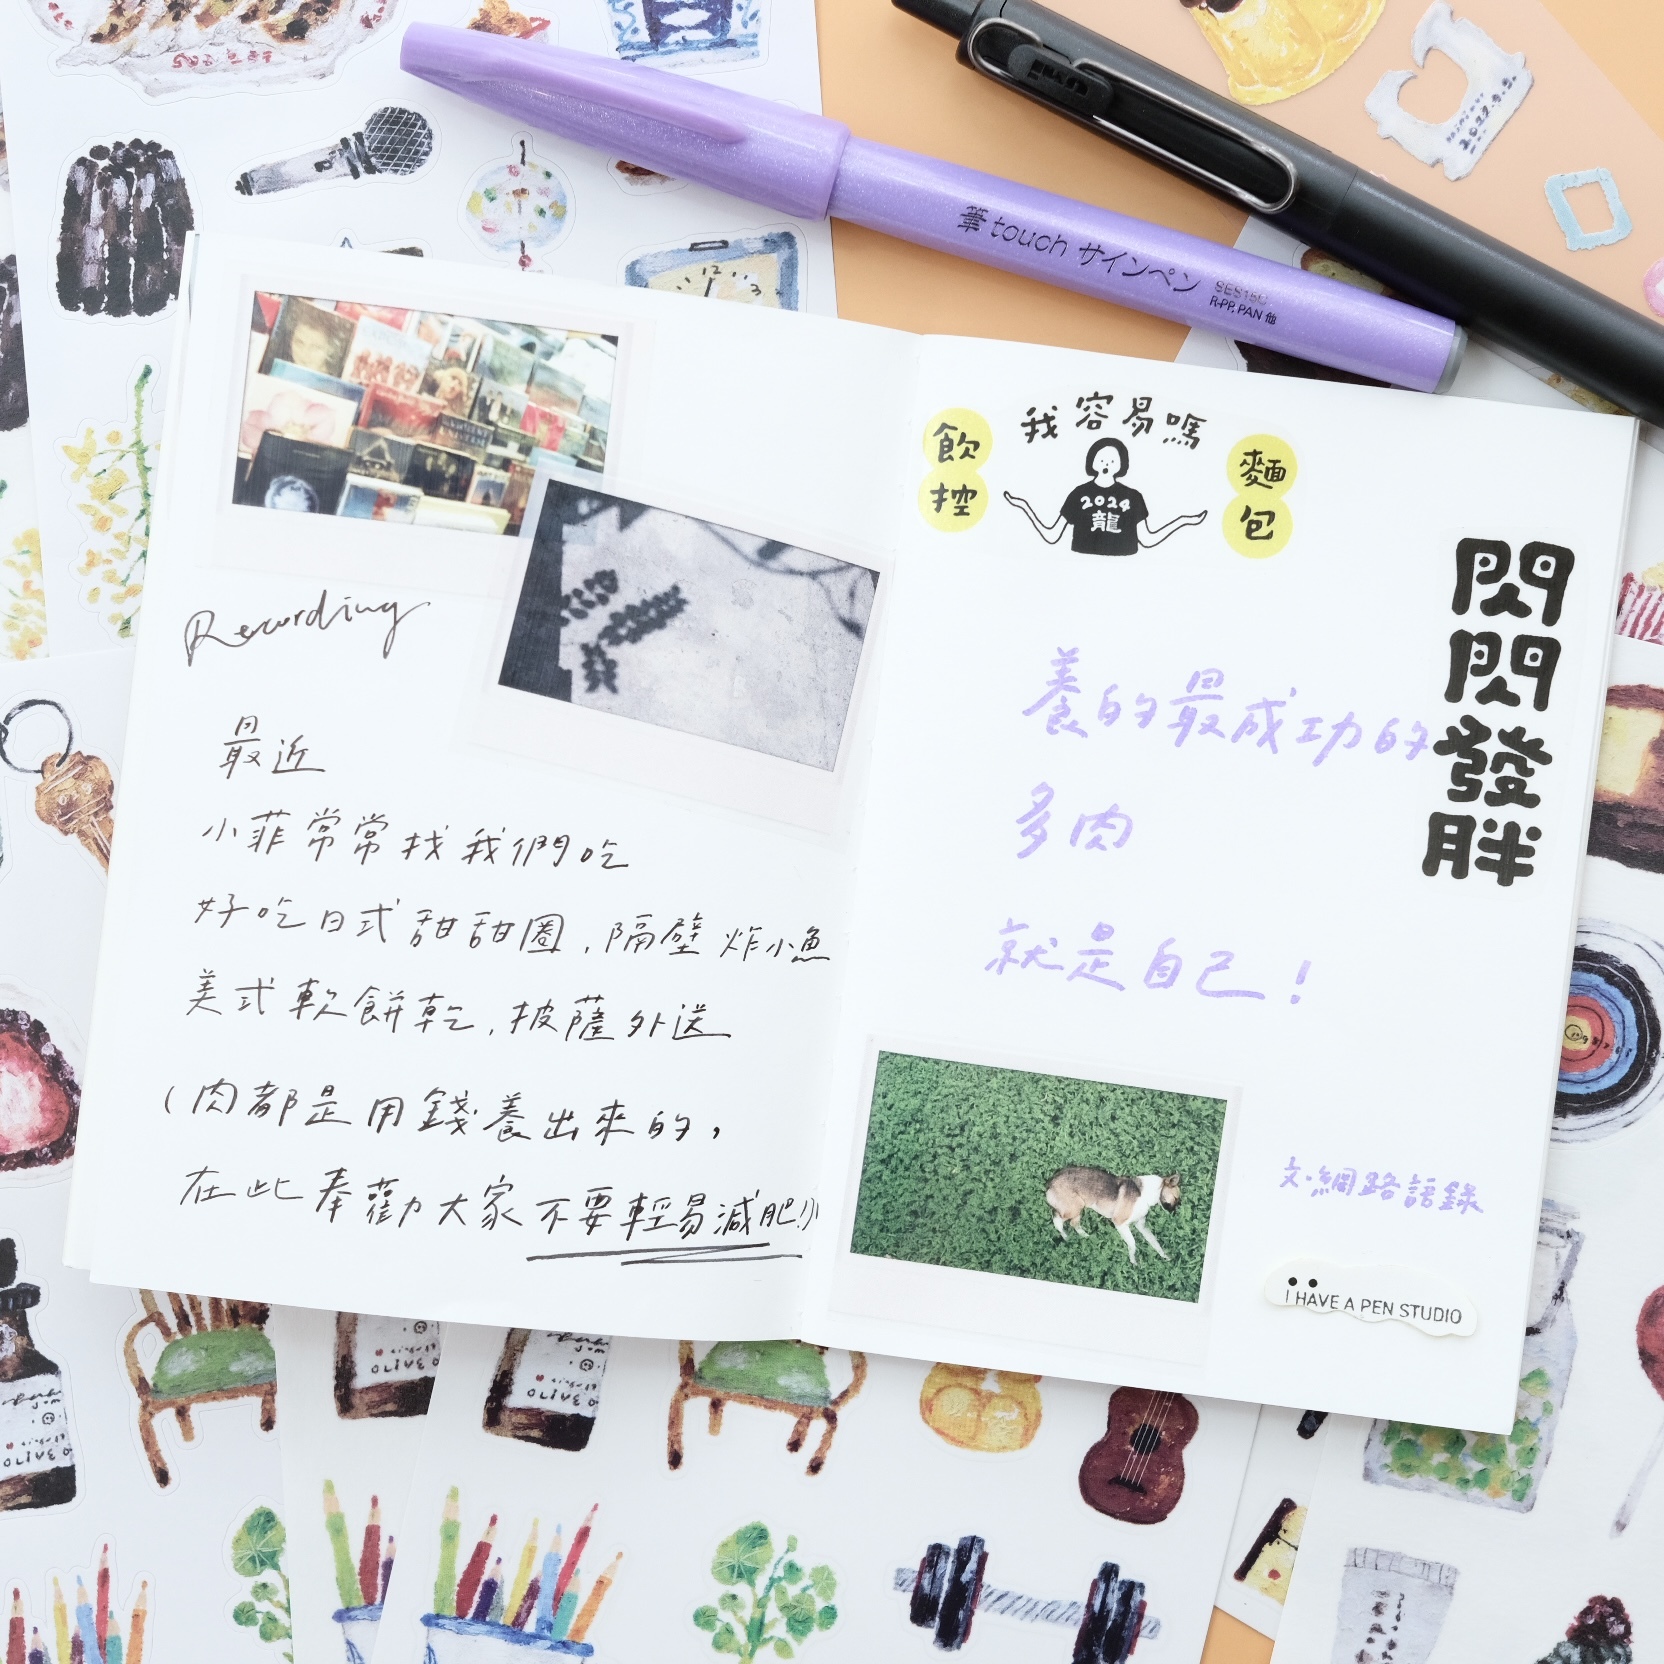 筆touch サインペン
SES15C
R-PP, PAN 他
12
3
Recording
最近
小菲常常找我們吃
好吃日式甜甜圈,隔壁炸小魚
美式軟餅乾,披薩外送
(肉都是用錢養出來的,
在此奉勸大家不要輕易減肥!!)
我容易嗎
飲控
麵包
2024
龍
閃閃發胖
養的最成功的
多肉
就是自己!
文·網路語錄
I HAVE A PEN STUDIO